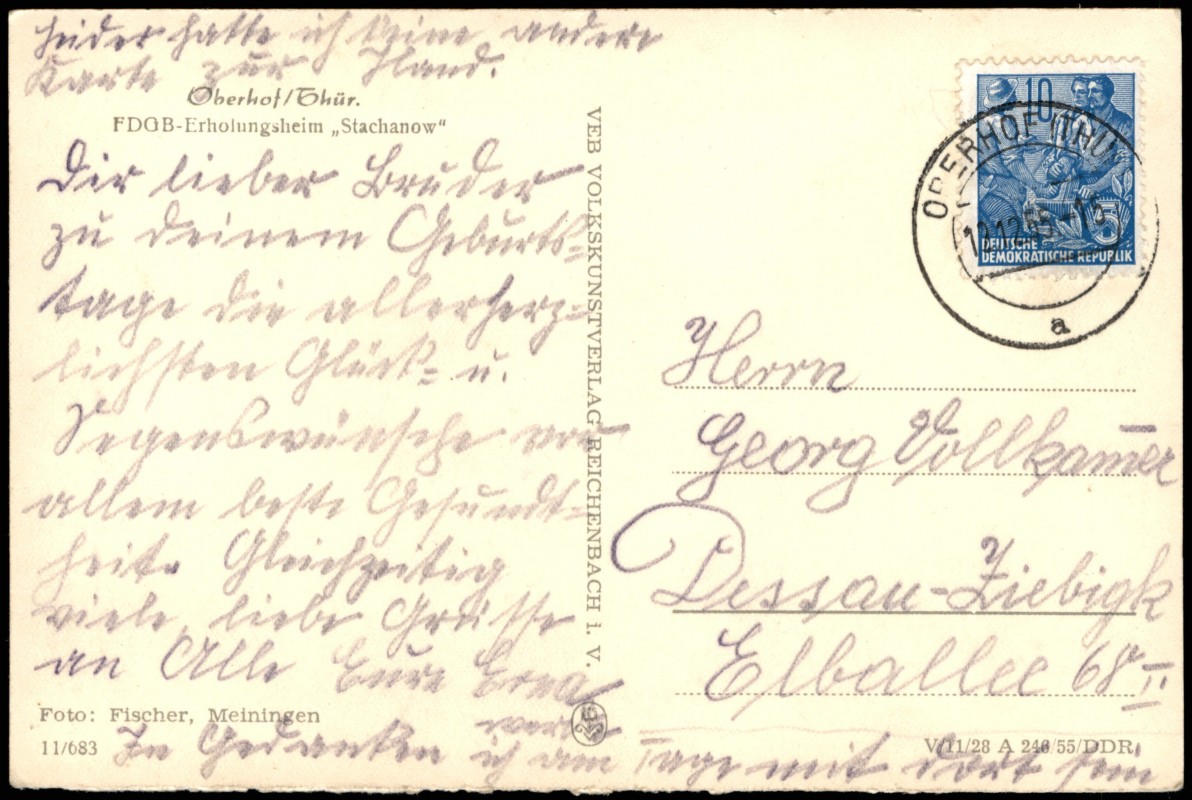 Leider hatte ich keine andere
Karte zur Hand.
Oberhof/Thür.
FDGB-Erholungsheim „Stachanow"
Dir lieber Bruder
zu deinem Geburts-
tage die allerherz-
lichsten Glück- u.
Segenswünsche vor
allem beste Gesundt-
heit. Gleichzeitig
viele, liebe Grüsse
an Alle Eure
werde
In Gedanken ich am Tage mit dort sein
Foto: Fischer, Meiningen
11/683
VEB VOLKSKUNSTVERLAG REICHENBACH i. V.
10
DEUTSCHE
DEMOKRATISCHE REPUBLIK
5
OBERHOF (THÜ
12.55
a
Herrn
Georg Vollkamer
Dessau-Ziebigk
Elballee 68 II
V/11/28 A 246/55/DDR